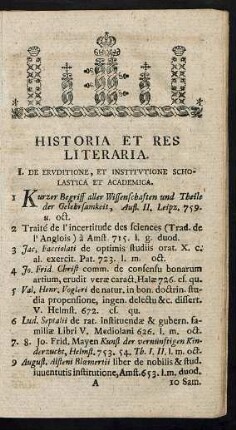 HISTORIA ET RES
LITERARIA.
I. DE ERVDITIONE, ET INSTITVTIONE SCHO-
LASTICA ET ACADEMICA.
1 Kurzer Begriff aller Wissenschaften und Theile
der Gelehrsamkeit, Aufl. II, Leipz, 759.
u. oct.
2 Traité de l'incertitude des sciences (Trad. de
l'Anglois) à Amst. 715. l. g. duod.
3 Jac, Facciolati de optimis studiis orat. X. c.
al. exercit. Pat. 723. l. m. oct.
4 Jo. Frid. Christ comm. de consensu bonarum
artium, erudit veræ caract, Halæ 726. cf. qu.
5 Val, Henr, Vogleri de natur, in bon. doctrin. stu-
dia propensione, ingen. delectu &c. dissert.
V. Helmst. 672. cf. qu.
6 Lud. Septalii de rat. instituendæ & gubern. fa-
miliæ Libri V, Mediolani 626. l. m. oct.
7- 8. Jo. Frid, Mayen Kunst der vernünftigen Kin-
derzucht, Helmst. 753. 54. Th. I, II l. m. oct.
9 August. Alsteni Bloemertii liber de nobilis & stud.
iuuentutis institutione, Amst. 653. l.m. duod.
A
10 Sam.